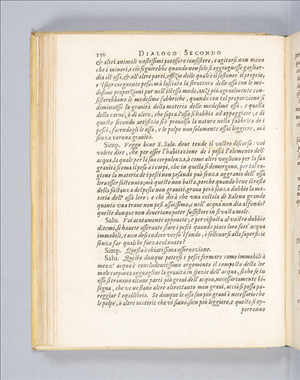 130 DIALOGO SECONDO
& altri animali vastissimi potessero consistere, e agitarsi non meno
che i minori, e ciò seguirebbe quando non solo si aggiugnesse gagliar-
dia all'ossa, & all'altre parti, offizio delle quali è il sostener il proprio,
e 'l sopravegnente peso; mà lasciata la struttura delle ossa con le me-
desime proporzioni pur nell'istesso modo, anzi più agevolmente con-
sisterebbono le medesime fabbriche, quando con tal proporzione si
diminuisse la gravità della materia delle medesime ossa, e quella
della carne, ò di altro, che sopra l'ossa si habbia ad appoggiare, e di
questo secondo artifizio si è prevalsa la natura nella fabbrica de i
pesci, facendogli le ossa, e le polpe non solamente assai leggiere, mà
senza veruna gravità.
Simp. Veggo bene S. Salv. dove tende il vostro discorso: voi
volete dire, che per esser l'habitazione de i pesci l'elemento dell'
acqua, la quale per la sua corpulenza, ò come altri vogliono per la sua
gravità scema il peso à i corpi, che in quella si demergono, per tal ra-
gione la materia de i pesci non pesando può senza aggravio dell'ossa
loro esser sostenuta; mà questo non basta, perche quando bene il resto
della sustanza del pesce non graviti, grava però senza dubbio la ma-
teria dell'ossa loro: e chi dirà che una costola di balena grande
quanto una trave non pesi assaissimo, e nell'acqua non dia al fondo?
queste dunque non devrieno poter sussistere in sì vasta mole.
Salv. Voi acutamente opponete, e per risposta al vostro dubbio
ditemi se havete osservato stare i pesci quando piace loro sott'acqua
immobili, e non descendere verso 'l fondo, ò sollevarsi alla superficie
senza far qualche forza col nuoto?
Simp. Questa è chiarissima osservazione.
Salv. Questo dunque potersi i pesci fermare come immobili à
mezz'acqua è concludentissimo argomento il composto della lor
mole corporea agguagliare la gravità in spezie dell'acqua, sì che se in
essa si trovano alcune parti più gravi dell'acqua, necessariamente bi-
sogna, che ve ne siano altre altrettanto men gravi, acciò si possa pa-
reggiar l'equilibrio. Se dunque le ossa son più gravi è necessario che
le polpe, ò altre materie che vi siano, sien più leggiere, e queste si op-
porranno